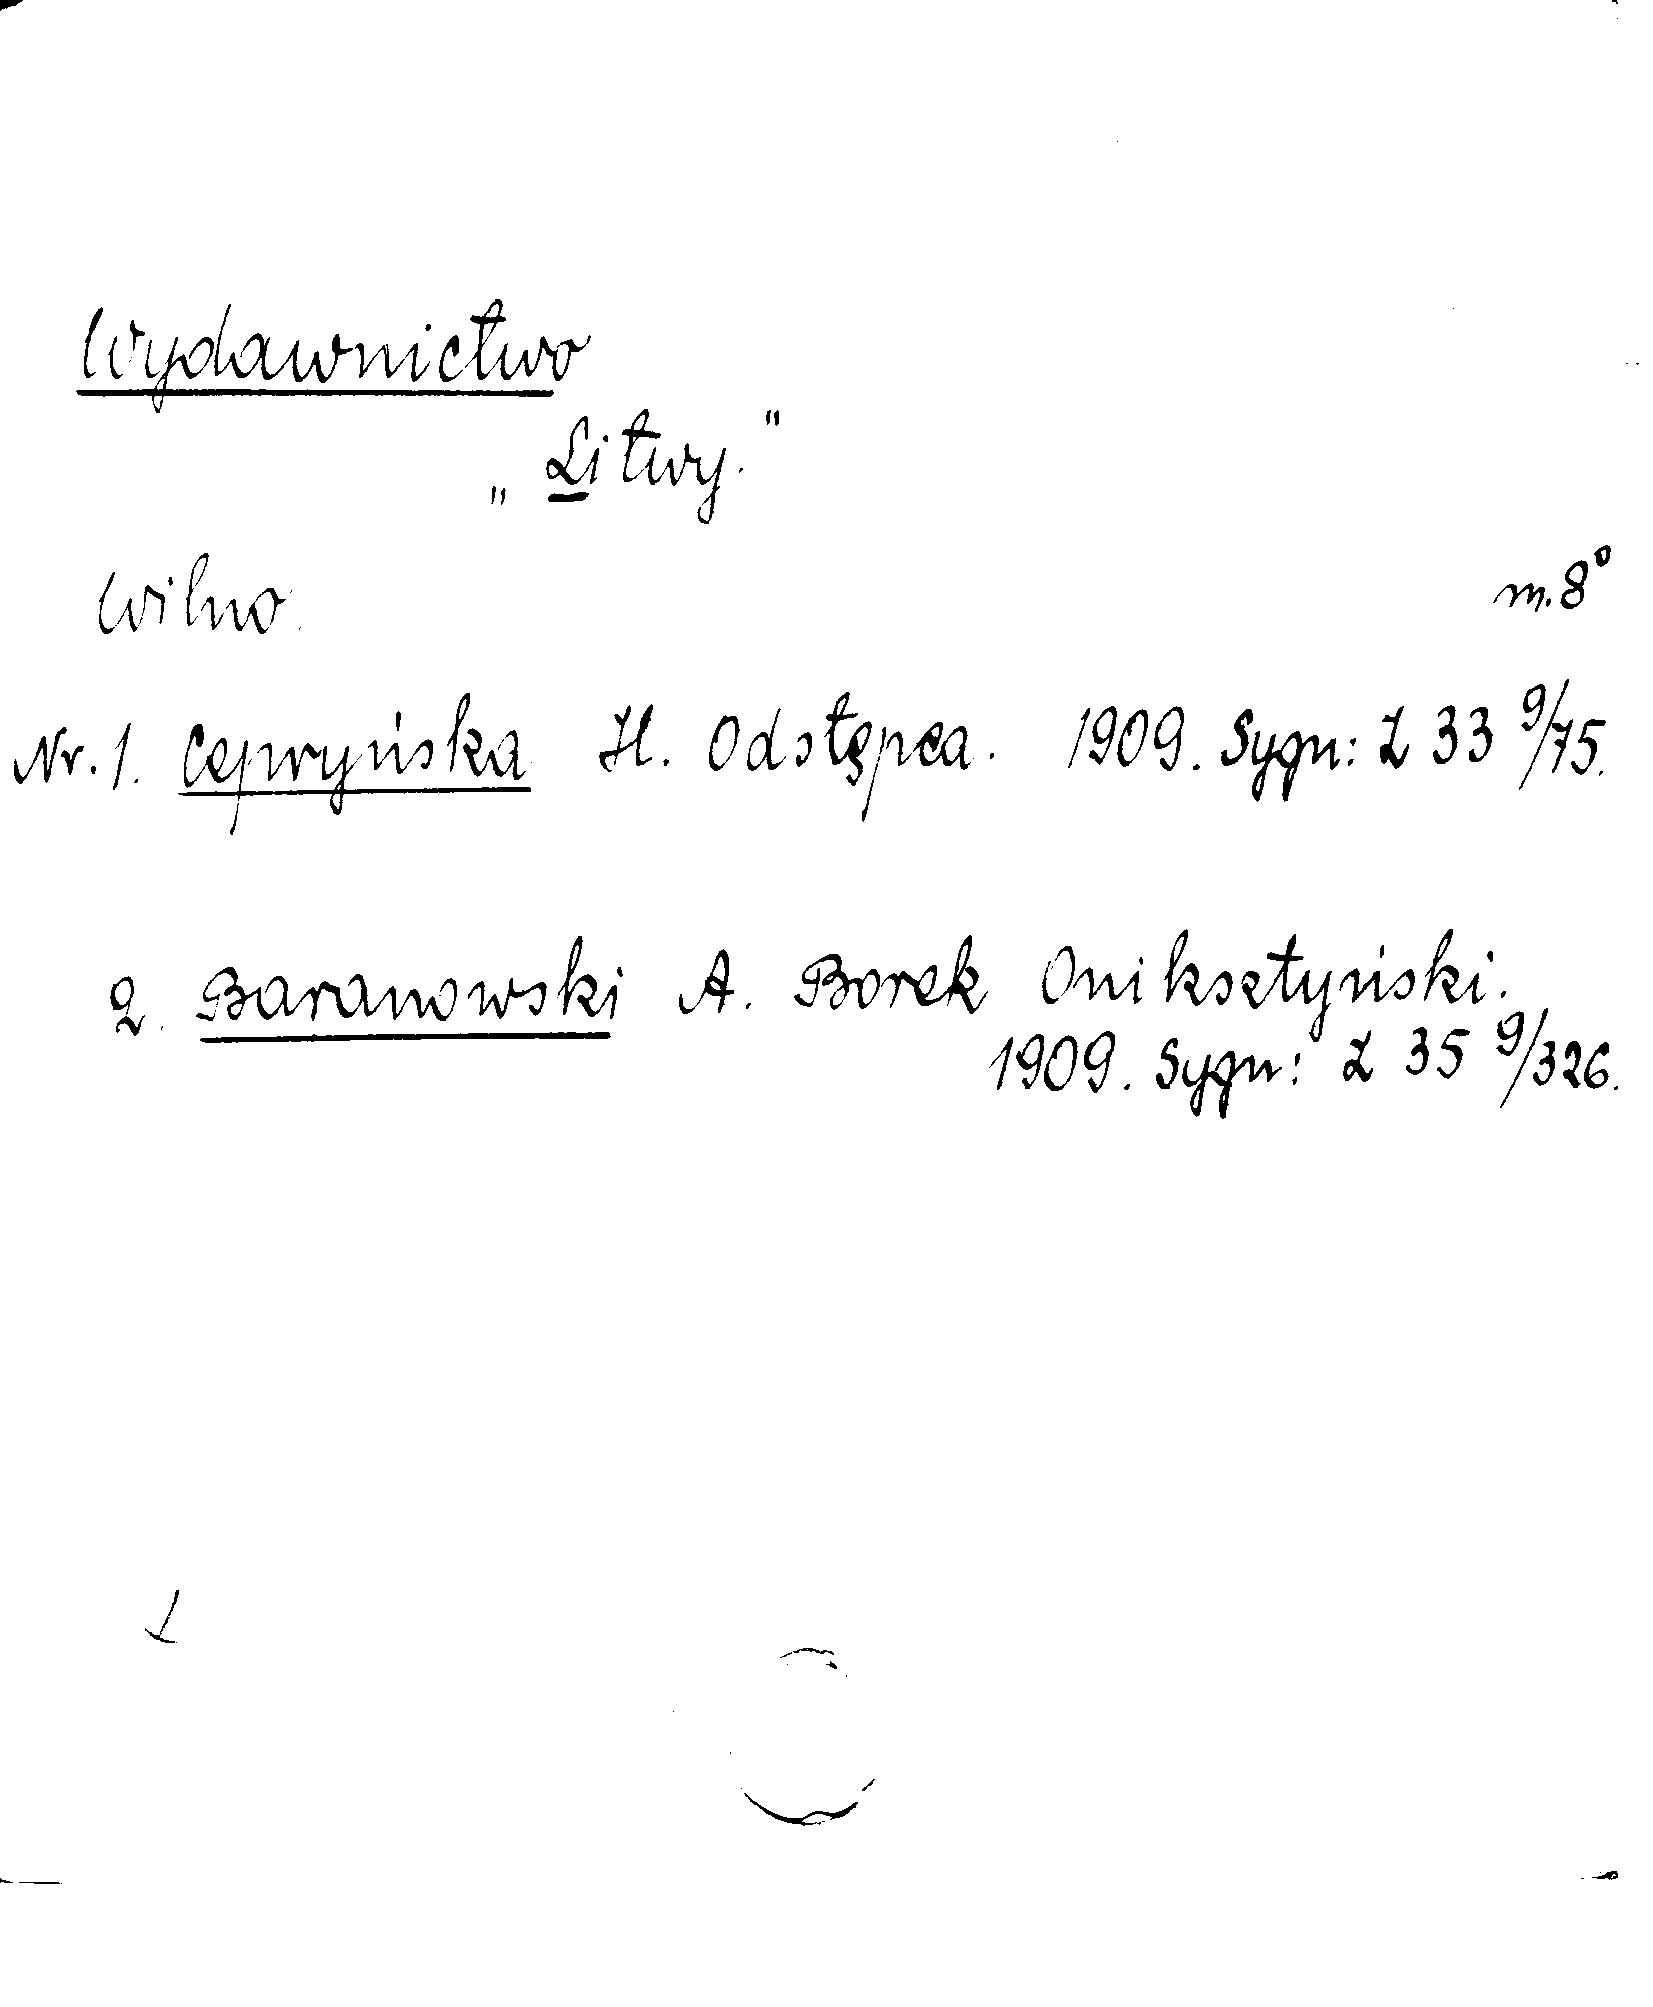 Wydawnictwo
„Litwy."
Wilno.
m. 8°
Nr. 1. Cepryńska H. Odstępca. 1909. Sygn: Z 33 9/75.
2. Baranowski A. Borek Oniksztyński.
1909. Sygn: Z 35 9/326.